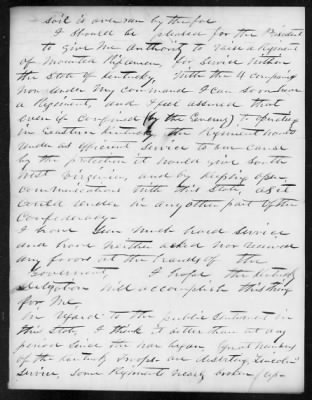 soil is over run by the foe
I should be pleased for the President
to give me authority to raise a Regiment
of Mounted Riflemen, for service within
the State of Kentucky, With the 4 companys
now under my command I can soon have
a Regiment, and I feel assured that
even if confined (by the Enemy) to operating
in Eastern Kentucky the Regiment would
render as efficient service to our cause
by the protection it would give South
West Virginia, and by keeping open
communications with this State, as it
could render in any other part of the
Confederacy.
I have seen much hard service
and have neither asked nor received
any favors at the hands of the
Government, I hope the Kentucky
Delegation will accomplish this thing
for me.
In regard to the public sentiment in
this State, I think it better than at any
period since the war began. Great numbers
of the Kentucky troops are deserting, Lincoln
service, some Regiments nearly broken up.